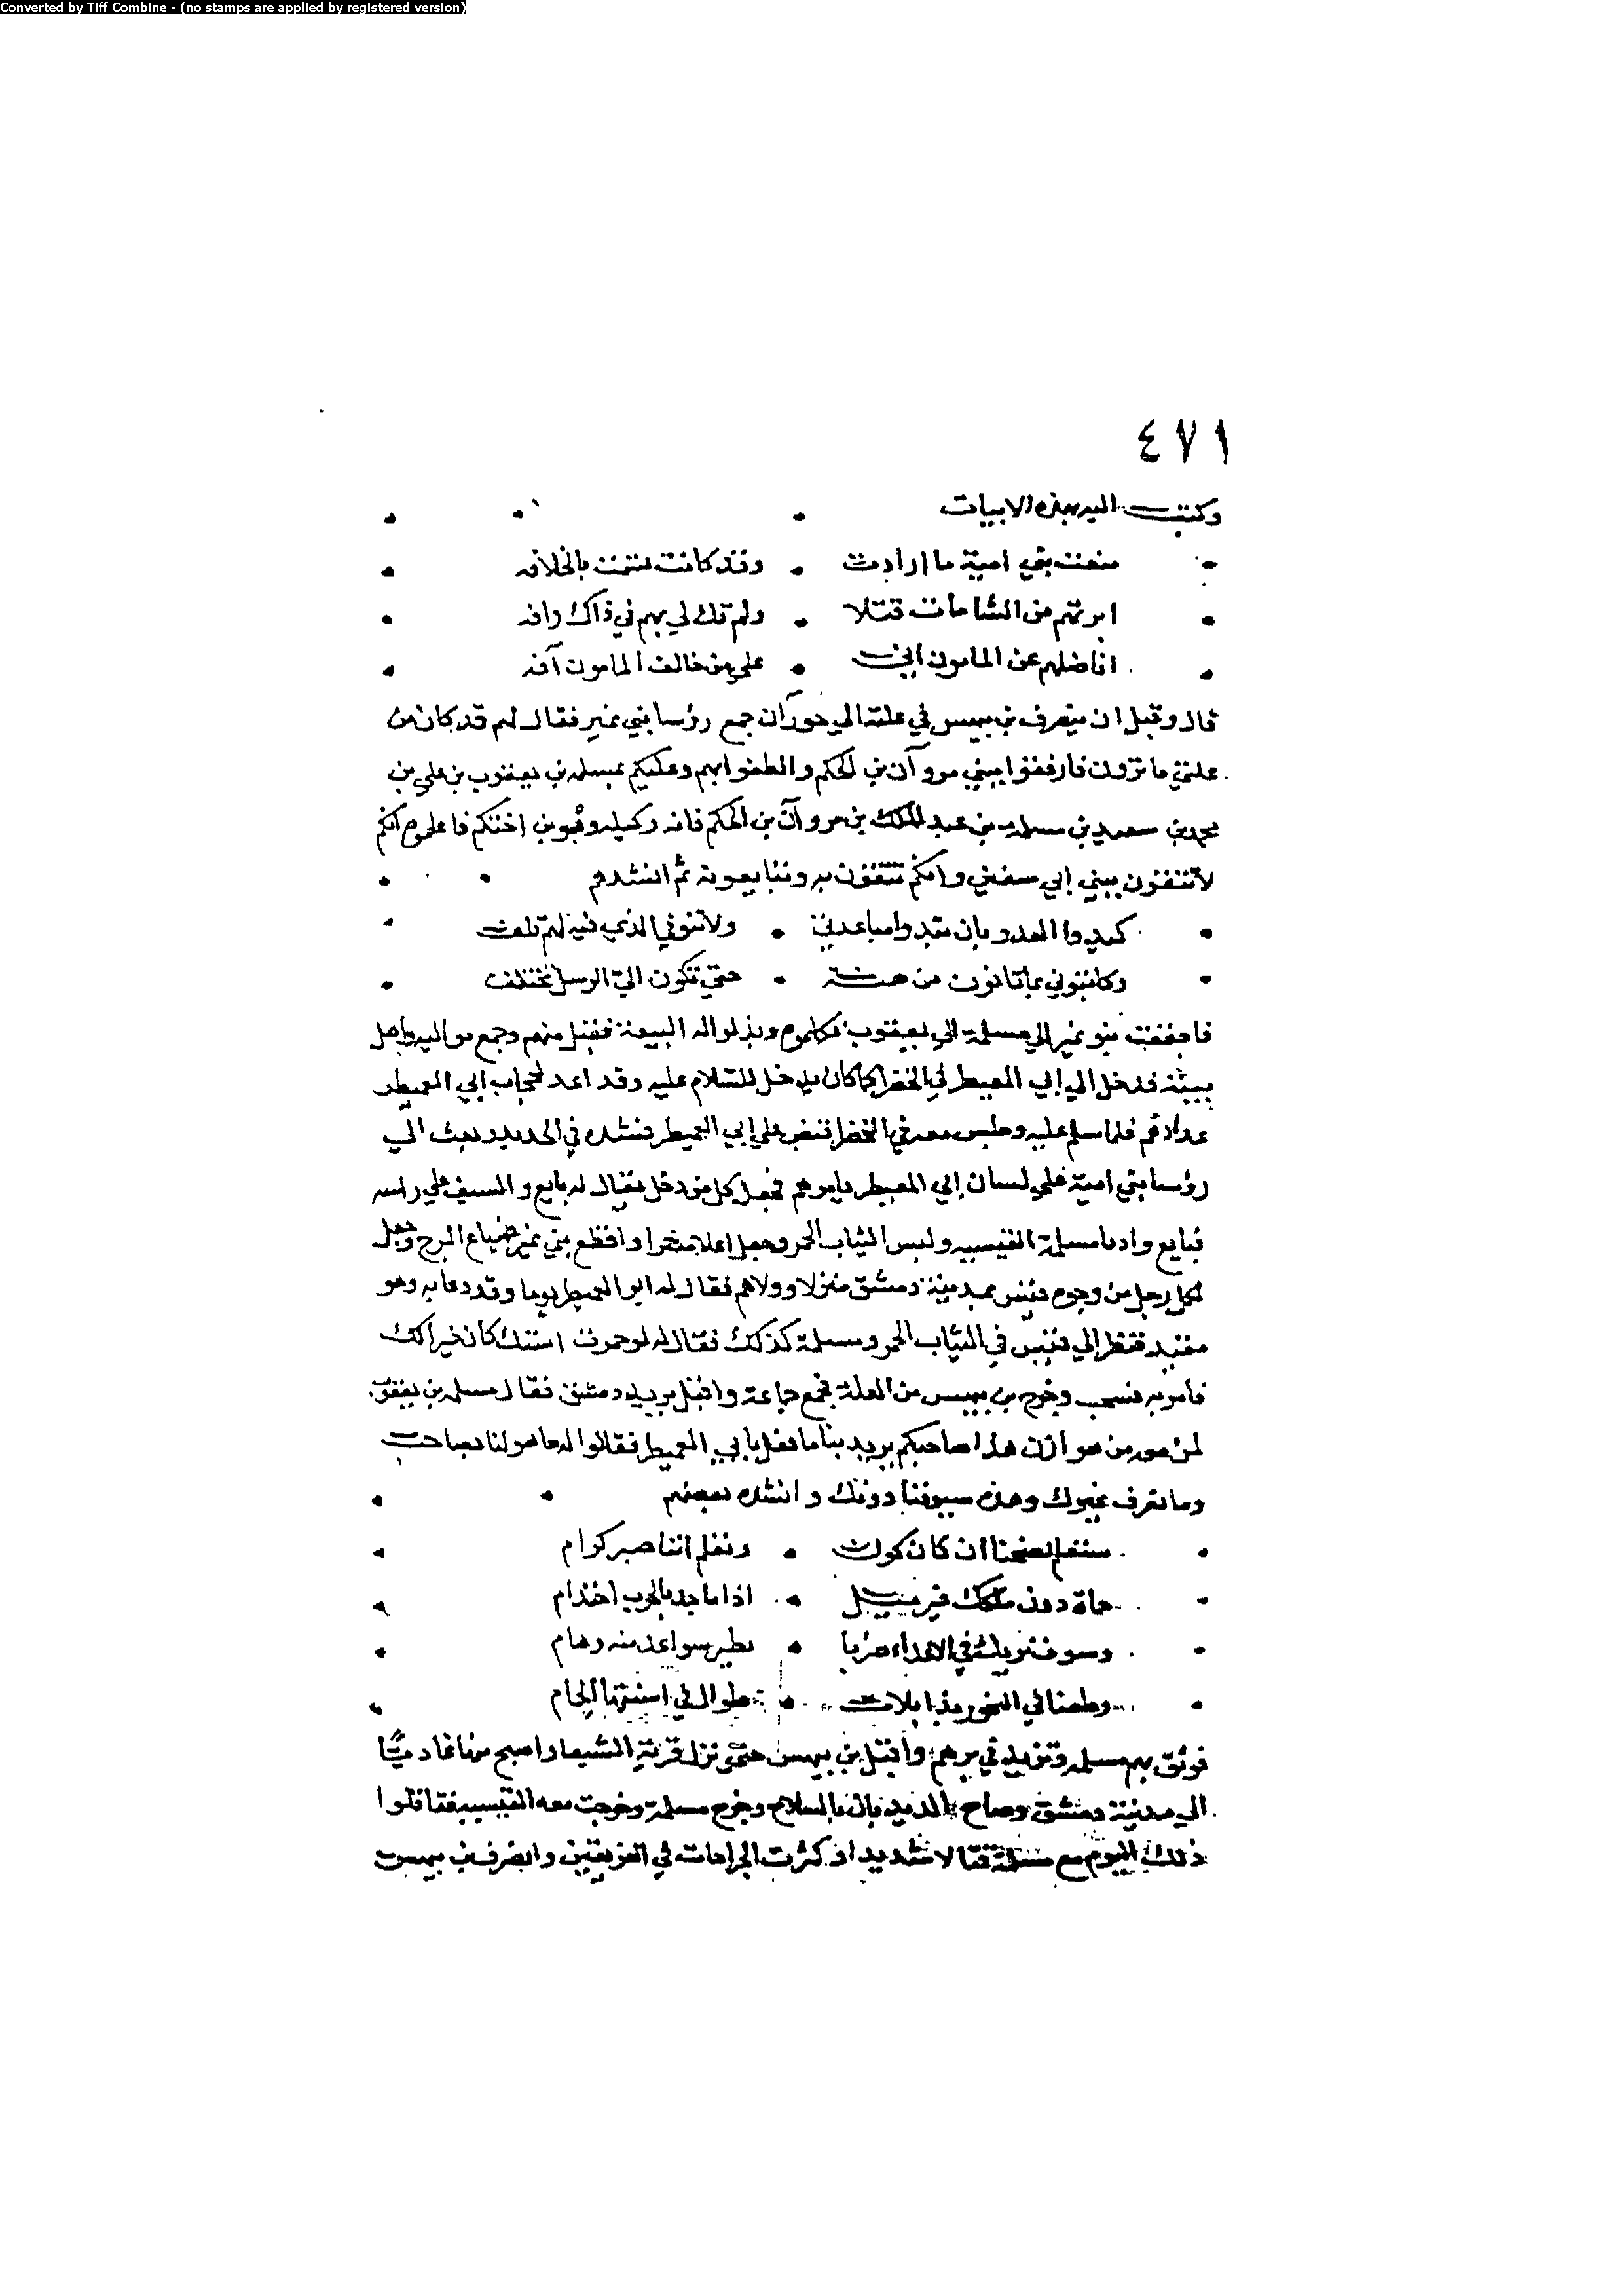 Converted by Tiff Combine - (no stamps are applied by registered version)
٤٧١
وكتب اليه بهذه الابيات
منعت بني امية ما ارادت وقد كانت تسمت بالخلافه
ابرتهم من الشامات قتلا ولم تك لي بهم في ذاك رافه
اناضلهم عن المامون اني على من خالف المامون آفه
قال وقبل ان ينصرف بن بيهس في علته الى حوران جمع رؤسا بني نمير فقال لهم قد كان من
علتي ما ترون فارفقوا ببني مروآن بن الحكم والطفوا بهم وعليكم بمسلمه بن يعقوب بن علي بن
محمد بن سعيد بن مسلمة بن عبد الملك بن مروآن بن الحكم فانه ركيك وهو بن اختكم فاعلموه انكم
لا تثقون ببني ابي سفين وانكم تثقون به وتبايعونه ثم انشدهم
كيدوا العدو بان تبدوا مباعدتي ولا تنوا في الذي فيه لهم تلف
وكاتبوني بما تاتون من حتى تكون الي الرسل تختلف
فاجتمعت بنو نمير الى مسلمة بن يعقوب فكلموه وبذلوا له البيعة فقبل منهم وجمع مواليه واهل
بيته فدخل الى ابي العميطر في الخضرا كما كان يدخل للسلام عليه وقد اعد لحجاب ابي العميطر
عدادهم فلما سلم عليه وجلس معه في الخضرا قبض على ابي العميطر فشده في الحديد وبعث الى
رؤسا بني امية على لسان ابي العميطر يامرهم فجعل كل من دخل يقال له بايع والسيف على راسه
فبايع وادنا مسلمة القيسيه ولبس الثياب الحمر وجعل اعلامه حمرا واقطع بني نمير ضياع المرج وجعل
لكل رجل من وجوه قيس بمدينة دمشق منزلا وولاهم فقال له ابو العميطر يوما وقد دعا به وهو
مقيد فنظر الى قيس في الثياب الحمر ومسلمة كذلك فقال له لو حمرت استك كان خيرا لك
فامر به فسحب وخرج بن بيهس من العلة فجمع جماعة واقبل يريد دمشق فقال مسلمه بن يعقوب
لمن معه من هوازن هذا صاحبكم يريد بنا ما فعل بابي العميطر فقالوا له ما هو لنا بصاحب
وما نعرف غيرك وهذه سيوفنا دونك وانشده بعضهم
ستعلم نصحنا ان كان كون وتعلم اننا صبر كرام
حماة دون ملكك غير ميل اذا ما جد بالحرب احتدام
وسوف نريك في الاعداء ضربا يطير سواعد منه وهام
وطعنا في النحور بذابلات طوال في اسنتها الحمام
فوثق بهم مسلمه وتزيد في برهم واقبل بن بيهس حتى نزل قرية الشبعا واصبح منها غاديا
الى مدينة دمشق وصاح الديدبان بالسلاح وخرج مسلمة وخرجت معه القيسيه فقاتلوا
ذلك اليوم مع مسلمة قتالا شديدا وكثرت الجراحات في الفريقين وانصرف بن بيهس